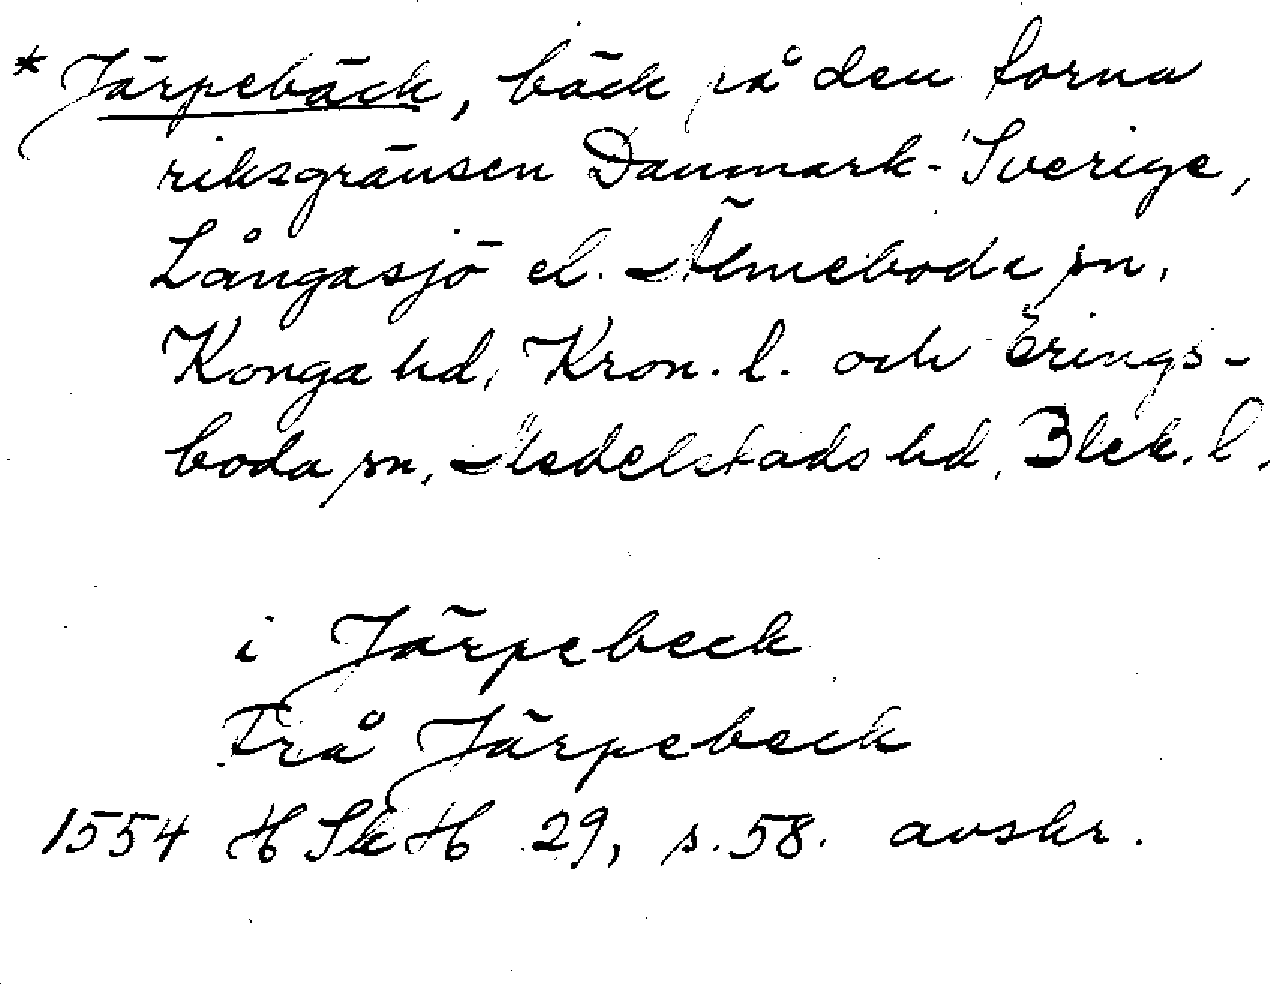 * Järpebäck, bäck på den forna
riksgränsen Danmark-Sverige,
Långasjö el. Älmeboda sn,
Konga hd, Kron. l. och Erings-
boda sn, Medelstads hd, Blek. l.
i Järpebeck
Frå Järpebeck
1554 HSkH 29, s. 58. avskr.